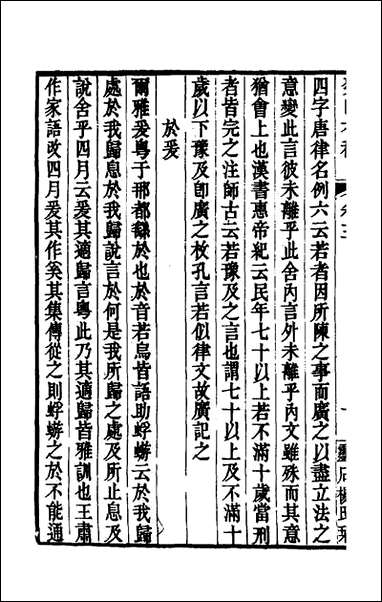 四字唐律名例六云若者因所陳之事而廣之以盡立法之
意變此言彼未離乎此舍內言外未離乎內文雖殊而其意
猶會上也漢書惠帝紀云民年七十以上若不滿十歲當刑
者皆完之注師古云若豫及之言也謂七十以上及不滿十
歲以下豫及卽廣之故孔言若似律文故廣記之
於爰
爾雅爰粤于那都繇於也於首若烏皆語助蜉蝣云於我歸
處於我歸息於我歸說言於何是我所歸之處及所止息及
說舍乎四月云爰其適歸言粤此乃其適歸皆雅訓也王肅
作家語改四月爰其作奚其集傳從之則蜉蝣之於不能通